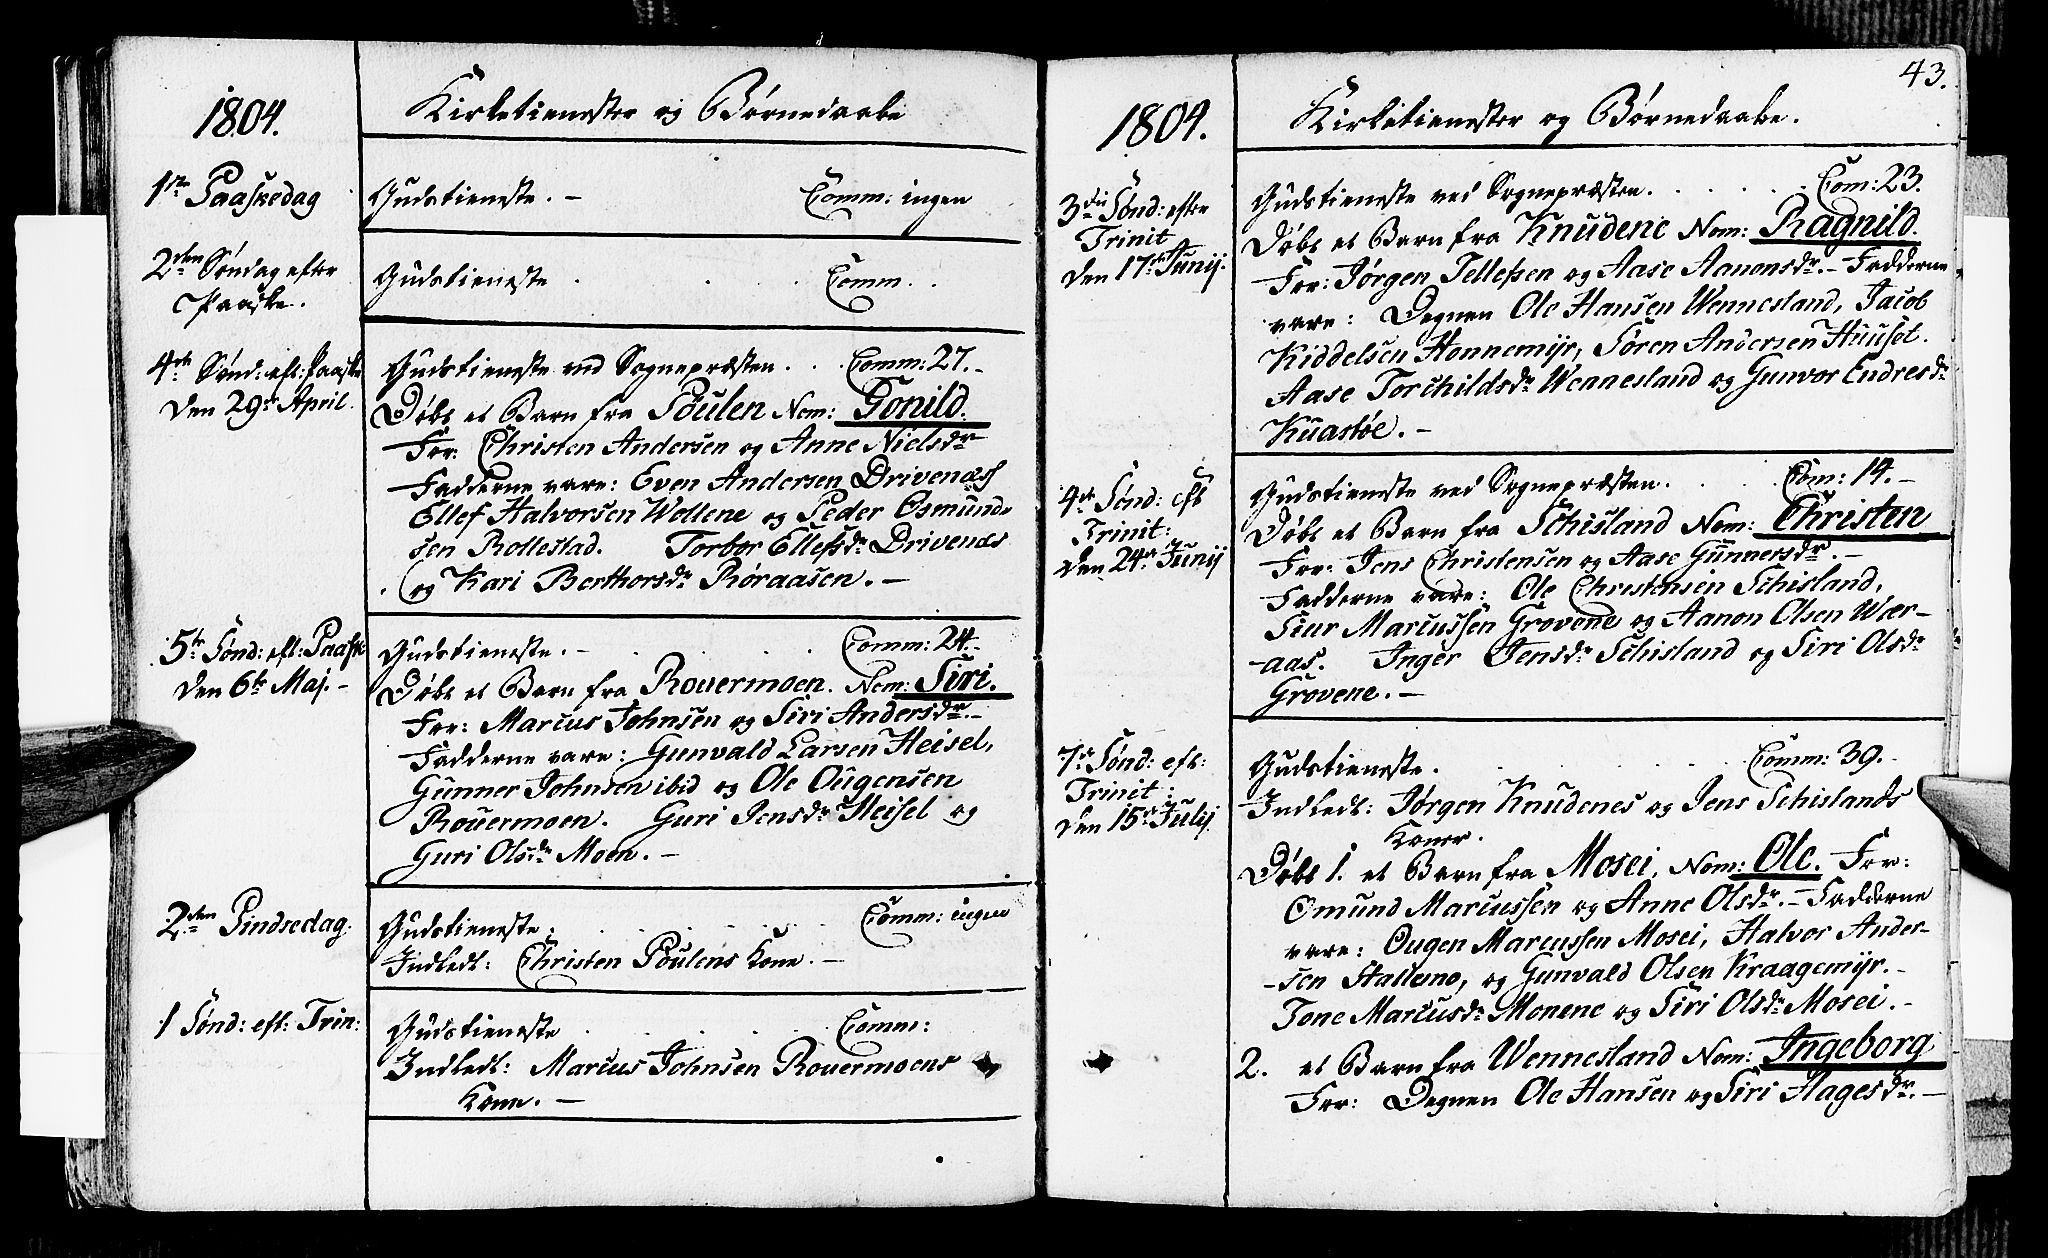 1804.
Kirketienester og Børnedaabe
1ste Paaskedag
Gudstieneste. – Comm: ingen
2den Søndag efter
Paaske.
Gudstieneste . . . Comm. . .
4de Sønd: eft: Paaske
Den 29de April.
Gudstieneste ved Sognepræsten . . Comm: 27. –
Døbt et Barn fra Poulen Nom: Gonild.
For: Christen Andersen og Anne Nielsdr
Fadderne vare: Even Andersen Drivenæs
Ellef Halvorsen Wollene og Peder Osmund-
sen Rollestad. Torbor Ellefsdr Drivenæs
og Kari Berthorsdr Røraasen. –
5te Sønd: eft: Paask
Den 6te Maj. –
Gudstieneste. – . . . Comm: 24. –
Døbt et Barn fra Rouermoen. Nom: Siri.
For: Marcus Johnsen og Siri Andersdr. –
Fadderne vare: Gunvald Larsen Heisel,
Gunner Johnsen ibid og Ole Ougensen
Rouermoen. Guri Jensdr Heisel og
Guri Olsdr Moen. –
2den Pindsedag.
Gudstieneste. . . . . Comm: ingen
Indledt: Christen Poulens Kone. –
1 Sønd: eft: Trin:
Gudstieneste . . . . Comm:
Indledt: Marcus Johnsen Rouermoens
Kone. –
43.
1804.
Kirketienester og Børnedaabe.
3die Sønd: efter
Trinit
Den 17de Junij.
Gudstieneste ved Sognepræsten. . . . . Com: 23.
Døbt et Barn fra Knudene Nom: Ragnild.
For: Jørgen Tellefsen og Aase Aanonsdr. – Fadderne
vare: Degnen Ole Hansen Wennesland, Jacob
Kiddelsen Honnemyr, Søren Andersen Huuset.
Aase Torchildsdr Wennesland og Gunvor Endresdr
Kuastøe. –
4de Sønd: eft
Trinit:
Den 24de Junij
Gudstieneste ved Sognepræsten. . . . Com: 14. –
Døbt et Barn fra Schisland Nom: Christen
For: Jens Christensen og Aase Gunnersdr. –
Fadderne vare: Ole Christensen Schisland,
Siur Marcussen Grovene og Aanon Olsen Wær-
-aas. Inger Jensdr Schisland og Siri Olsdr
Grovene. –
7de Sønd: eft:
Trinit:
Den 15de Julij.
Gudstieneste. . . . . Comm: 39. –
Indledt: Jørgen Knudenes og Jens Schislands
Koner.
Døbt 1. et Barn fra Mosei, Nom: Ole. For:
Omund Marcussen og Anne Olsdr. – Fadderne
vare: Ougen Marcussen Mosei, Halvor Ander-
-sen Stallemo, og Gunvald Olsen Kraagemyr. –
Tone Marcusdr Monene og Siri Olsdr Mosei. –
2. et Barn fra Wennesland Nom: Ingeborg
For: Degnen Ole Hansen og Siri Aagesdr. –